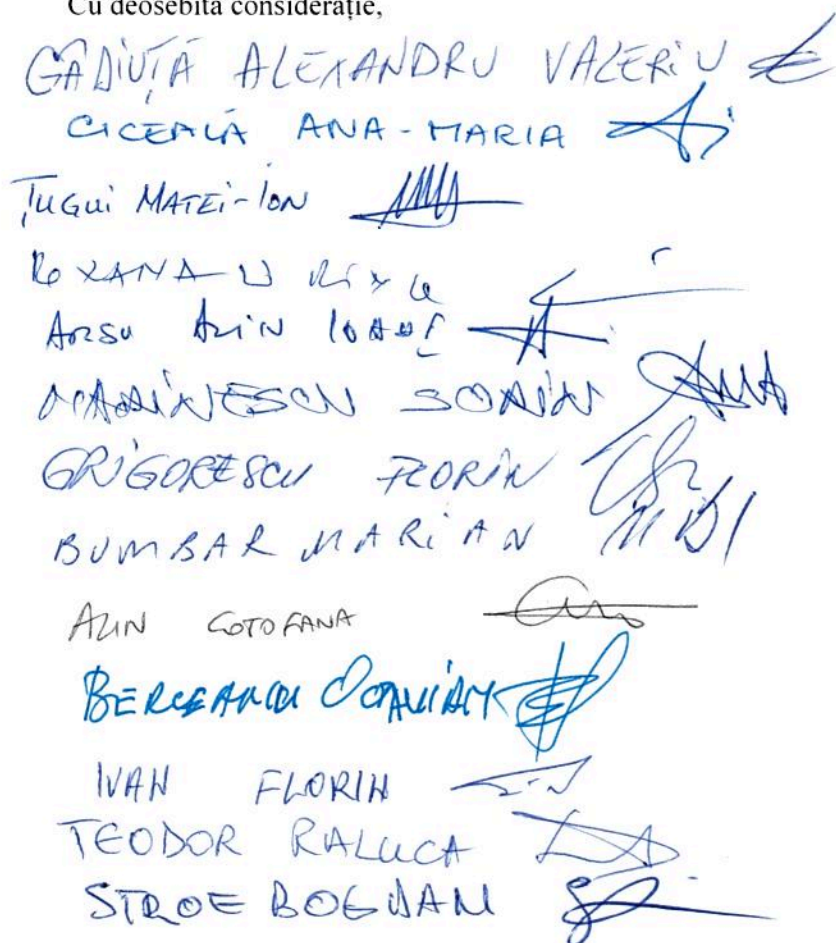 Cu deosebită considerație,
GÂDIUȚĂ ALEXANDRU VALERIU
CICEALĂ ANA-MARIA
ȚUGUI MATEI-ION
ROXANA
ARSU ALIN IOANE
MARINESCU SORIN
GRIGORESCU FLORIN
BUMBAR MARIAN
ALIN COTOFANA
BERCEANU OCTAVIAN
IVAN FLORIN
TEODOR RALUCA
STROE BOGDAN